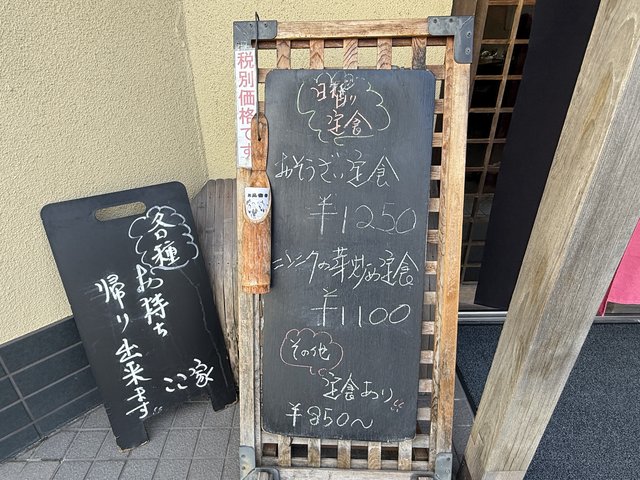 税別価格です
日替り
定食
おそうざい定食
¥1250
ニンニクの芽炒め定食
¥1100
その他
定食あり
¥850〜
各種
お持ち
帰り出来ます
ここ家